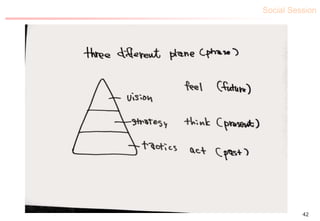 Social Session
three different plane (phase)
feel (future)
vision
strategy think (present)
tactics act (past)
42